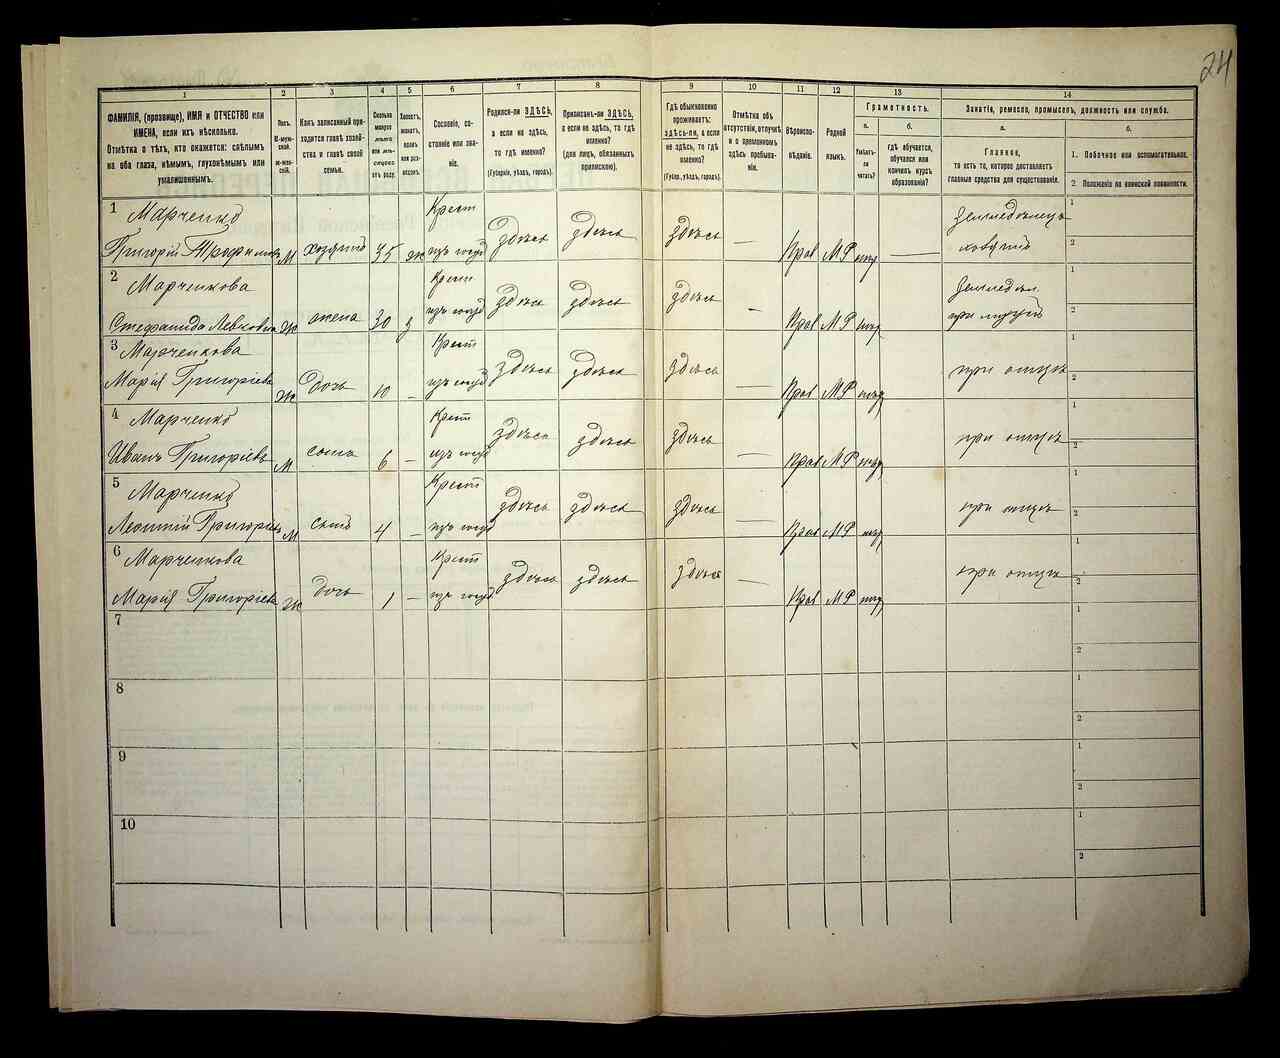 24
1
2
3
4
5
6
7
8
9
10
11
12
13
14
ФАМИЛІЯ, (прозвище), ИМЯ и ОТЧЕСТВО или
ИМЕНА, если ихъ нѣсколько.
Отмѣтка о тѣхъ, кто окажется: слѣпымъ
на оба глаза, нѣмымъ, глухонѣмымъ или
умалишеннымъ.
Полъ.
М-муж-
ской.
Ж-жен-
скій.
Какъ записанный при-
ходится главѣ хозяй-
ства и главѣ своей
семьи.
Сколько
минуло
лѣтъ
или мѣ-
сяцевъ
отъ роду.
Холостъ,
женатъ,
вдовъ
или раз-
веденъ.
Сословіе, со-
стояніе или зва-
ніе.
Родился-ли ЗДѢСЬ,
а если не здѣсь,
то гдѣ именно?
(Губернія, уѣздъ, городъ).
Приписанъ-ли ЗДѢСЬ,
а если не здѣсь, то гдѣ
именно?
(для лицъ, обязанныхъ
припискою).
Гдѣ обыкновенно
проживаетъ:
здѣсь-ли, а если
не здѣсь, то гдѣ
именно?
(Губер., уѣздъ, городъ).
Отмѣтка объ
отсутствіи, отлучкѣ
и о временномъ
здѣсь пребыва-
ніи.
Вѣроиспо-
вѣданіе.
Родной
языкъ.
Грамотность.
а.
Умѣетъ-
ли
читать?
б.
гдѣ обучается,
обучался или
кончилъ курсъ
образованія?
Занятіе, ремесло, промыселъ, должность или служба.
а.
Главное,
то есть то, которое доставляетъ
главныя средства для существованія.
б.
1. Побочное или вспомогательное.
2. Положеніе по воинской повинности.
1 Марченко
Григорій М хозяинъ 35 ж Крест здѣсь здѣсь здѣсь — Прав МР
2 Марченкова
Стефанида Левкова Ж жена 30 з Крест здѣсь здѣсь здѣсь - Прав МР
3 Марченкова
Марія Григоріева Ж дочь 10 – Крест здѣсь здѣсь здѣсь — Прав МР при отцѣ
4 Марченко
Иванъ Григоріевъ М сынъ 6 – Крест здѣсь здѣсь здѣсь — Прав МР при отцѣ
5 Марченко
Леонтій Григорьевъ М сынъ 4 – Крест здѣсь здѣсь здѣсь — Прав МР при отцѣ
6 Марченкова
Марія Григоріева Ж дочь 1 – Крест здѣсь здѣсь здѣсь — Прав МР при отцѣ
7
8
9
10